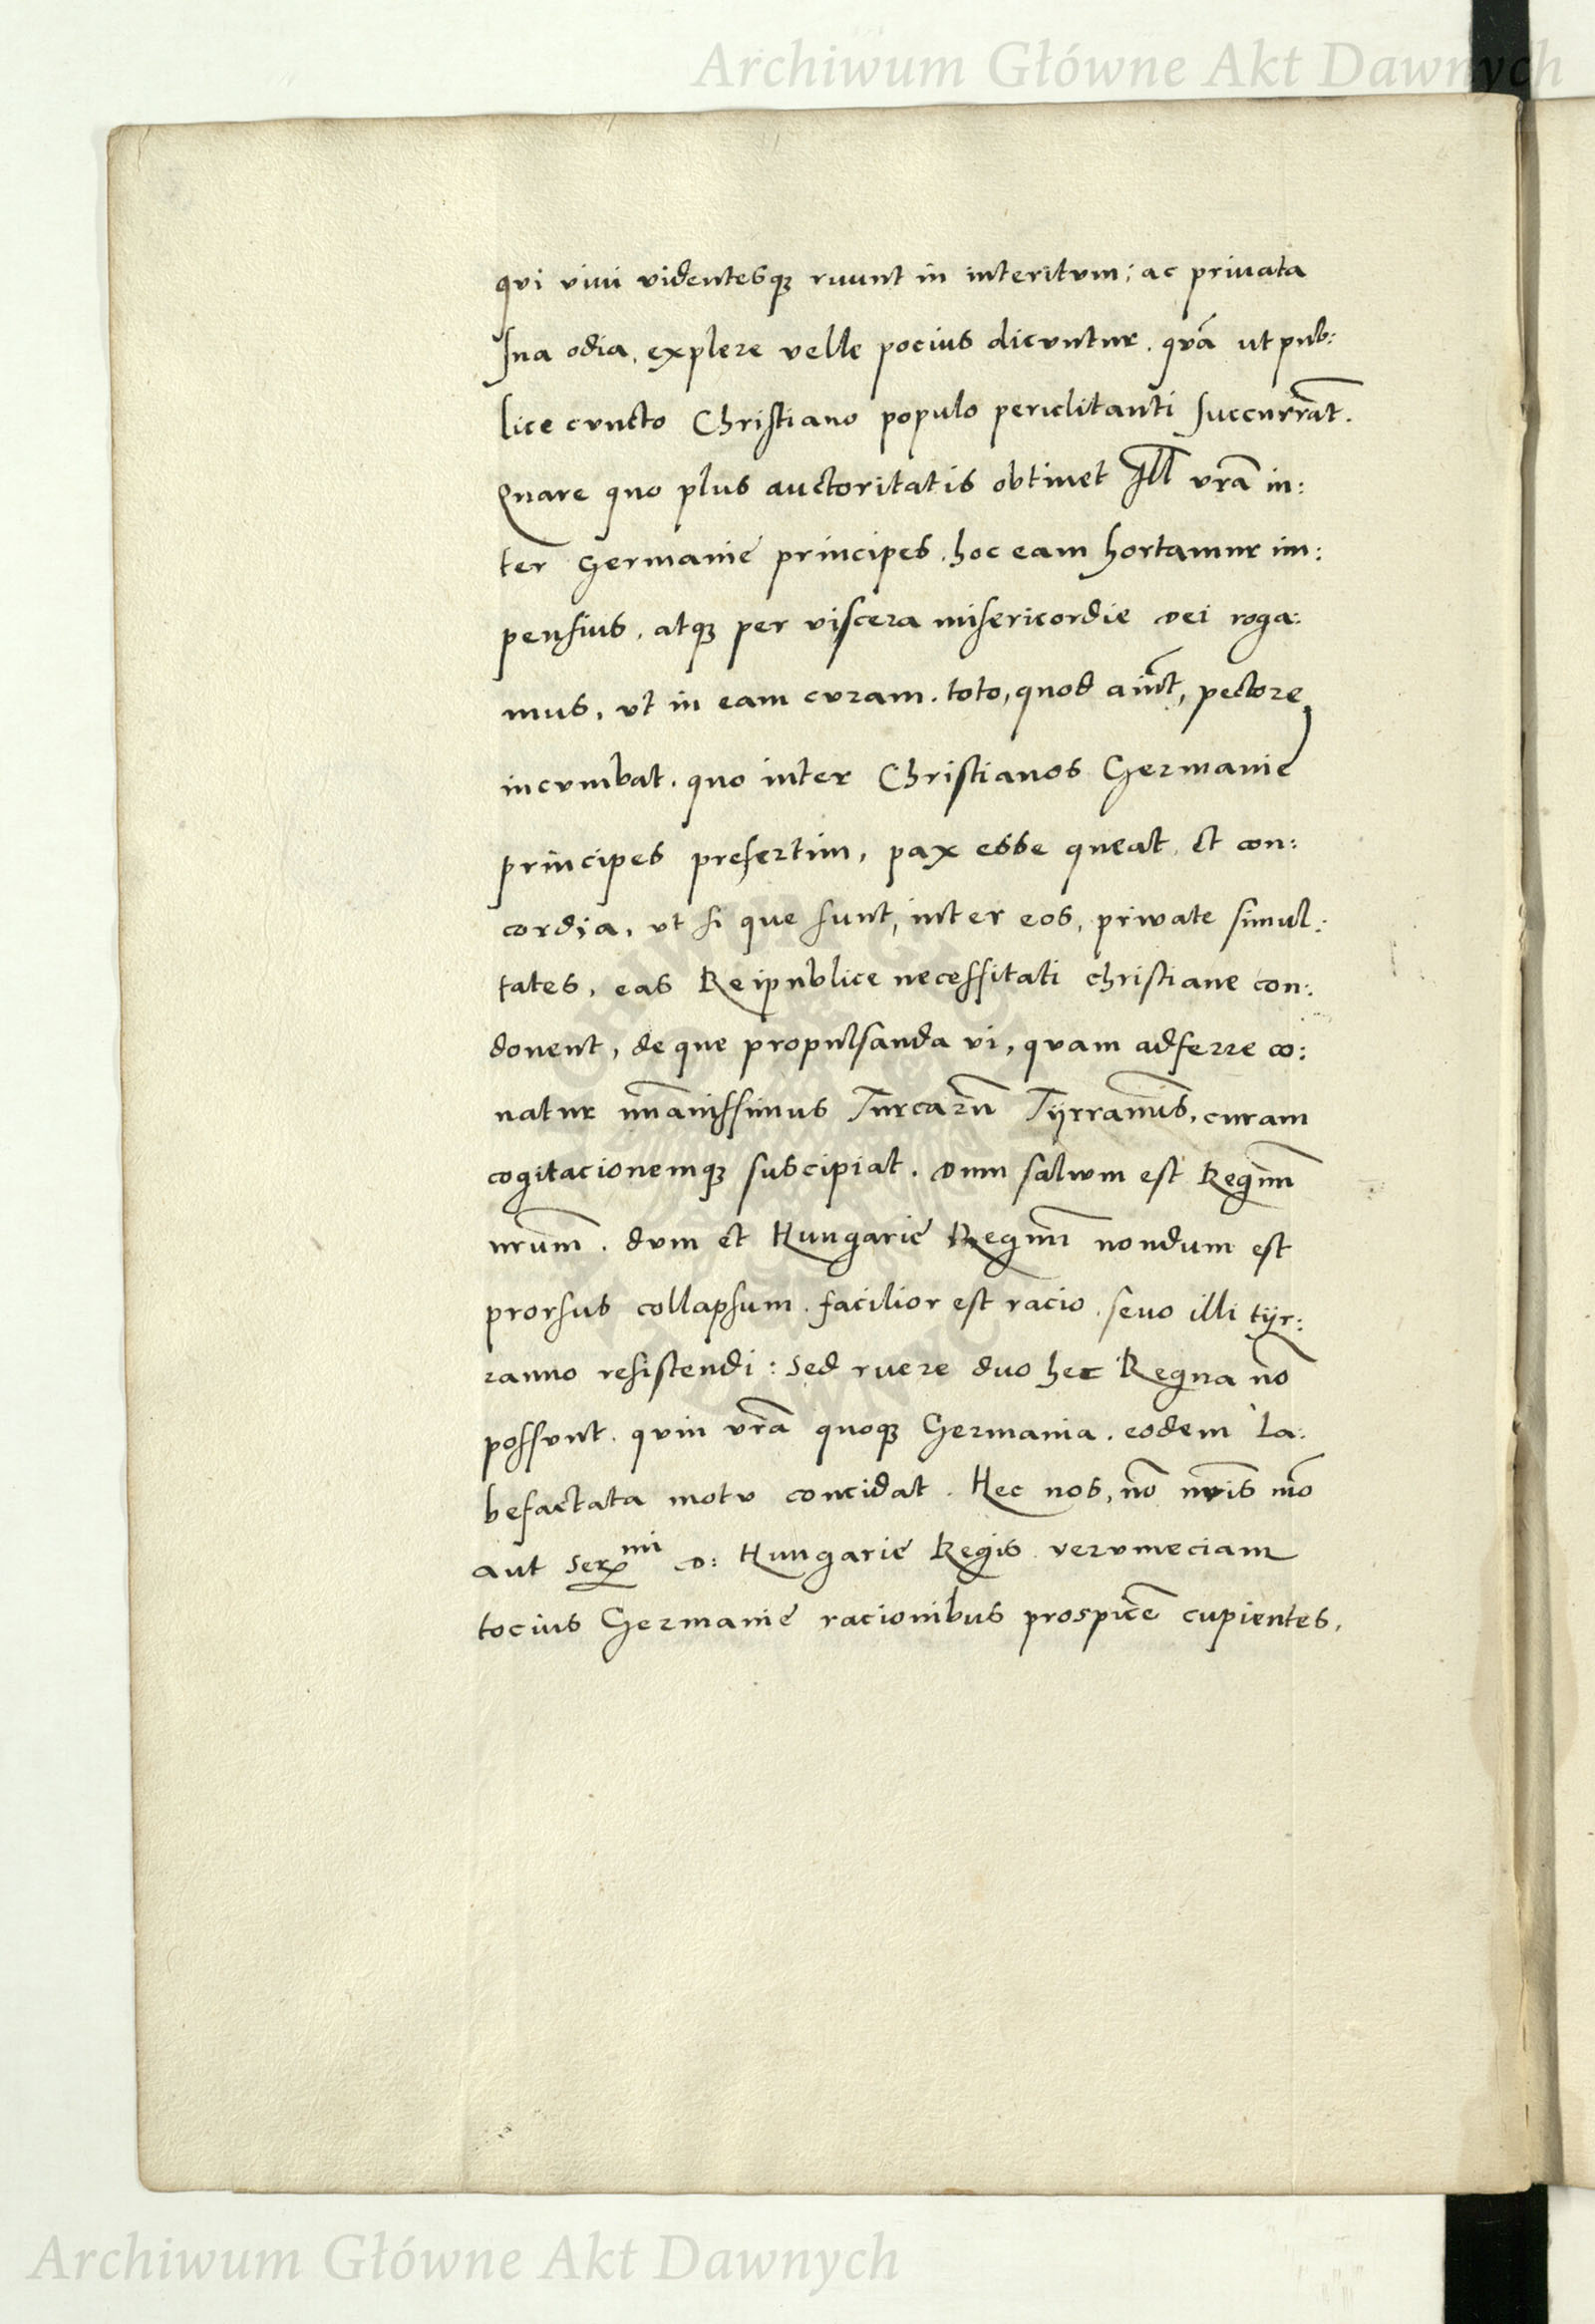 Archiwum Główne Akt Dawnych
qvi vivi videntesqꝫ ruunt in interitvm; ac privata
sua odia, explere velle pocius dicvntur. qvā ut pub:
lice cvncto Christiano populo periclitanti succurrāt.
Quare quo plus auctoritatis obtinet Ill̄ vrā in:
ter Germanię principes. hoc eam hortamur im:
pensius, atqꝫ per viscera misericordie dei roga:
mus, vt in eam cvram. toto, quod aiūt, pectore
incvmbat. quo inter Christianos Germanię
principes presertim, pax esse queat et con:
cordia, vt si que sunt, inter eos, private simul:
tates, eas Reipublice necessitati christiane con:
donent, de que propulsanda vi, qvam adferre co:
natur im̄anissimus Turcarū Tyrranus, curam
cogitacionemqꝫ suscipiat. dum salvum est Regnū
nrūm. dvm et Hungarię Regnū nondum est
prorsus collapsum. facilior est racio. sevo illi tyr:
ranno resistendi: sed rvere dvo hec Regna nō
possvnt. qvin vrā quoqꝫ Germania. eodem la:
befactata motv concidat. Hec nos, nō nrīs mō
avt Serᵐⁱ d: Hungarię Regis vervmeciam
tocius Germanię racionibus prospicē cupientes,
Archiwum Główne Akt Dawnych